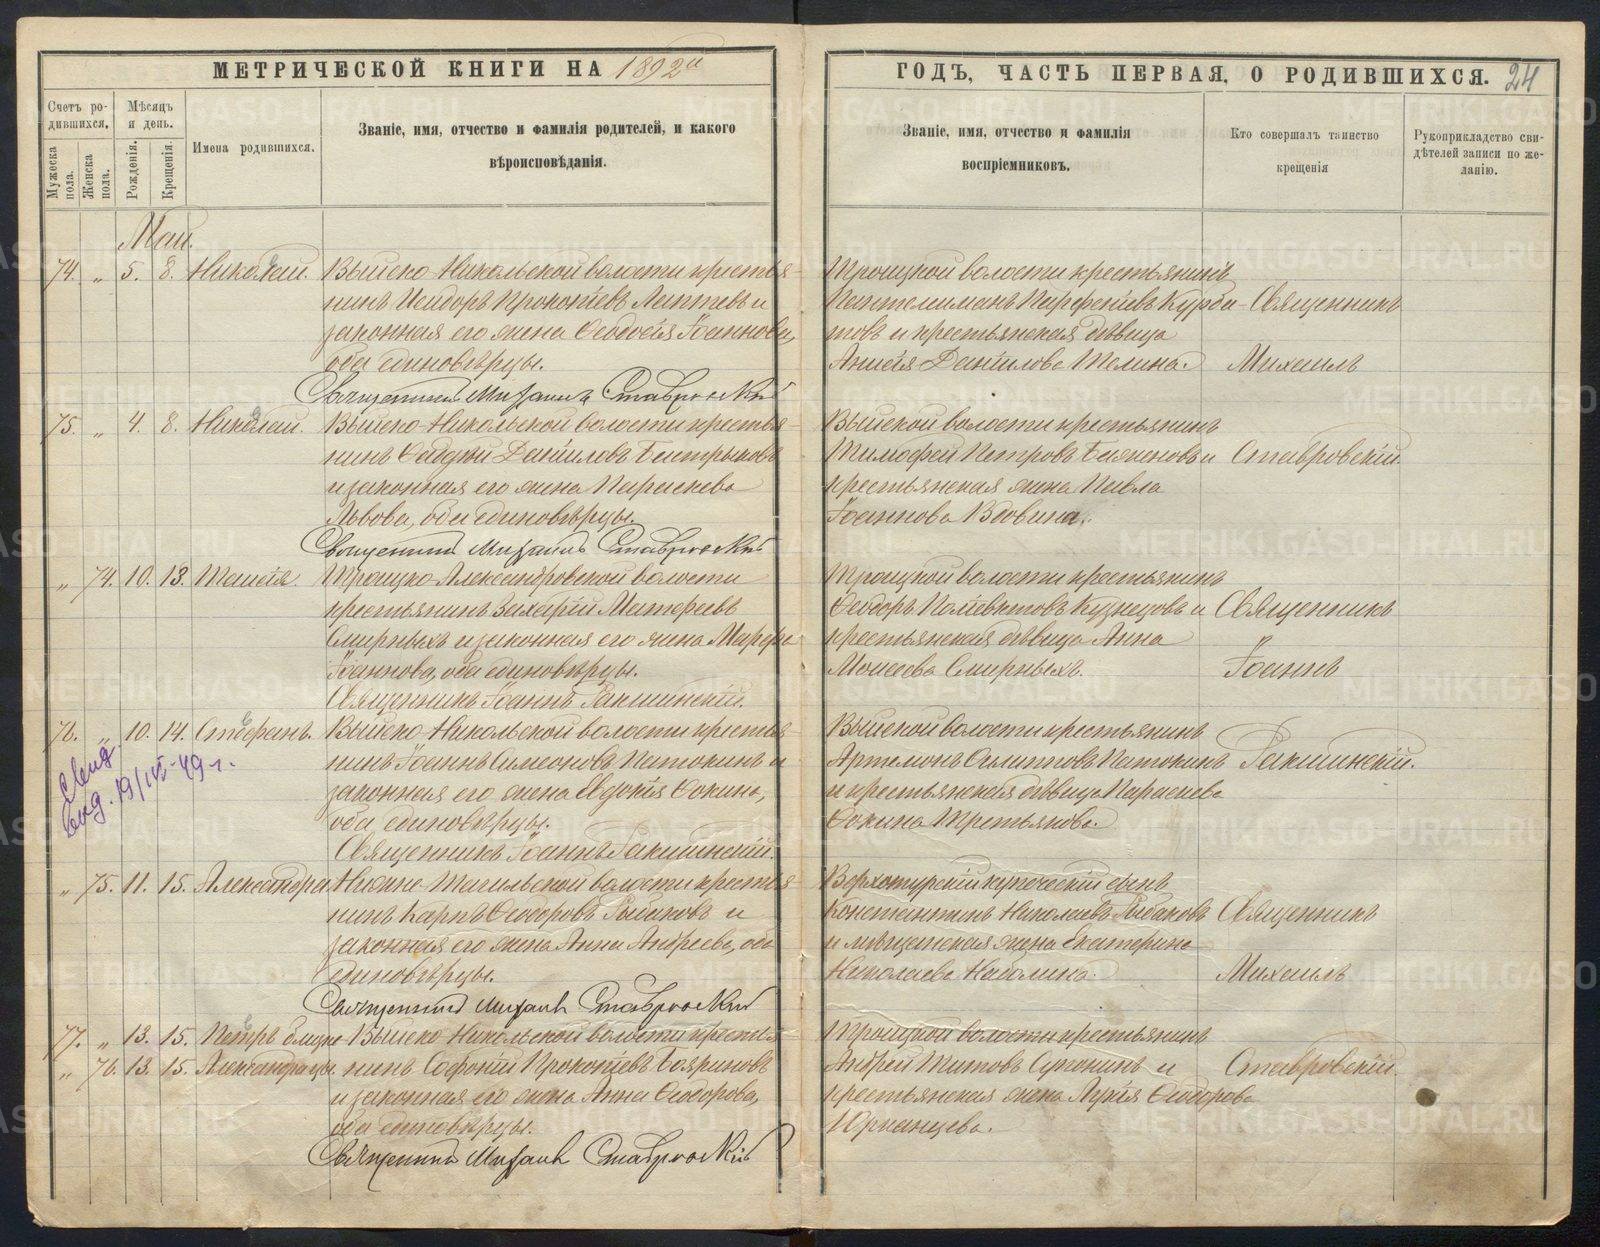 МЕТРИЧЕСКОЙ КНИГИ НА 1892й
Счетъ родившихся.
Мѣсяцъ и день.
Мужеска пола.
Женска пола.
Рожденія.
Крещенія.
Имена родившихся.
Званіе, имя, отчество и фамилія родителей, и какого
вѣроисповѣданія.
Май.
74. „ 5. 8. Николай. Выйско-Никольской волости крестья-
нинъ Исидоръ Прокопіевъ Лаптевъ и
законная его жена Ѳеодосія Іоаннова,
оба единовѣрцы.
Священникъ Михаилъ Ставровскій
75. „ 4. 8. Николай. Выйско-Никольской волости крестья-
нинъ Данiиловъ
и законная его жена Параскева
Львова, оба единовѣрцы.
Священникъ Михаилъ Ставровскій
„ 74. 10. 13. Таисія. Троицко-Александровской волости
крестьянинъ Захарій Матфеевъ
Смирныхъ и законная его жена Марфа
Іоаннова, оба единовѣрцы.
Священникъ Іоаннъ Ракшинскій.
76. „ 10. 14. Стефанъ. Выйско-Никольской волости крестья-
нинъ Іоаннъ Симеоновъ Патокинъ и
законная его жена Евдокія Фокина,
оба единовѣрцы.
Священникъ Іоаннъ Ракшинскій.
19/III-49 г.
„ 75. 11. 15. Александра Нижне-Тагильской волости крестья-
нинъ Карпъ Ѳеодоровъ Рыбаковъ и
законная его жена Анна Андреева, оба
единовѣрцы.
Священникъ Михаилъ Ставровскій
77. „ 13. 15. Петръ близне- Выйско-Никольской волости крестья-
„ 76. 13. 15. Александра цы. нинъ Софоній Прокопіевъ Бояриновъ
и законная его жена Анна Ѳеодорова,
оба единовѣрцы.
Священникъ Михаилъ Ставровскій
ГОДЪ, ЧАСТЬ ПЕРВАЯ, О РОДИВШИХСЯ. 24
Званіе, имя, отчество и фамилія
воспріемниковъ.
Кто совершалъ таинство
крещенія
Рукоприкладство сви-
дѣтелей записи по же-
ланію.
Троицкой волости крестьянинъ
Пантелиманъ Парфеніевъ Курба- Священникъ
товъ и крестьянская дѣвица
Анисія Даніилова Телина. Михаилъ
Выйской волости крестьянинъ
Тимофей Петровъ и Ставровскій.
крестьянская жена Павла
Іоаннова Вдовина.
Троицкой волости крестьянинъ
Ѳеодоръ Поліевктовъ Кузнецовъ и Священникъ
крестьянская дѣвица Анна
Моисеева Смирныхъ. Іоаннъ
Выйской волости крестьянинъ
Артемонъ Филиповъ Патокинъ Ракшинскій.
и крестьянская дѣвица Параскева
Фокина Третьякова.
Верхотурскій купеческій сынъ
Константинъ Николаевъ Рыбаковъ Священникъ
и мѣщанская жена Екатерина
Николаева Наволина. Михаилъ
Троицкой волости крестьянинъ
Андрей Титовъ и Ставровскій.
крестьянская жена Лукія Ѳеодорова
Юрганцева.